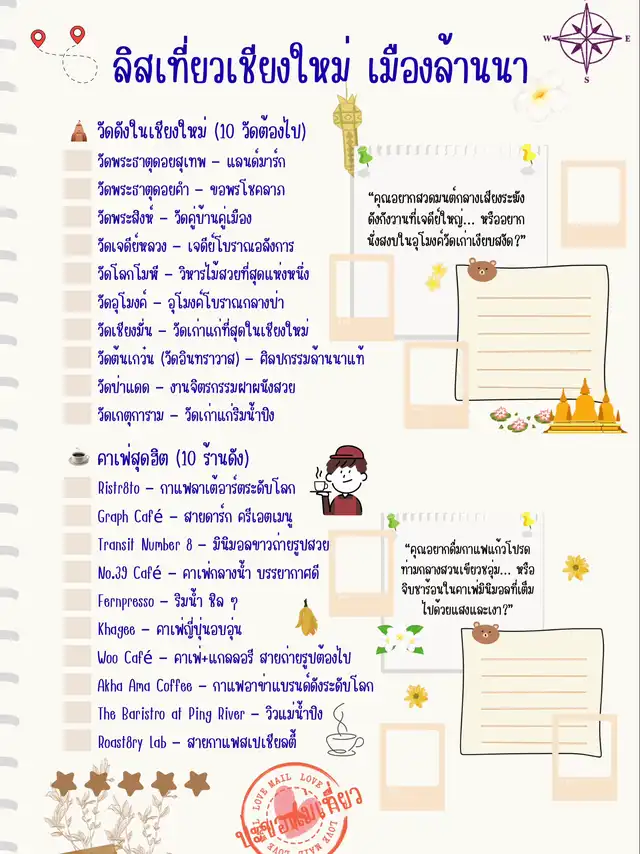 N
W
E
S
ลิสเที่ยวเชียงใหม่ เมืองล้านนา
วัดดังในเชียงใหม่ (10 วัดต้องไป)
วัดพระธาตุดอยสุเทพ – แลนด์มาร์ก
วัดพระธาตุดอยคำ – ขอพรโชคลาภ
วัดพระสิงห์ – วัดคู่บ้านคู่เมือง
วัดเจดีย์หลวง – เจดีย์โบราณอลังการ
วัดโลกโมฬี – วิหารไม้สวยที่สุดแห่งหนึ่ง
วัดอุโมงค์ – อุโมงค์โบราณกลางป่า
วัดเชียงมั่น – วัดเก่าแก่ที่สุดในเชียงใหม่
วัดต้นเกว๋น (วัดอินทราวาส) – ศิลปกรรมล้านนาแท้
วัดป่าแดด – งานจิตรกรรมฝาผนังสวย
วัดเกตุการาม – วัดเก่าแก่ริมน้ำปิง
“คุณอยากสวดมนต์กลางเสียงระฆัง
ดังกังวานที่เจดีย์ใหญ่... หรืออยาก
นั่งสงบในอุโมงค์วัดเก่าเงียบสงัด?”
คาเฟ่สุดฮิต (10 ร้านดัง)
Ristr8to – กาแฟลาเต้อาร์ตระดับโลก
Graph Café – สายดาร์ก ครีเอตเมนู
Transit Number 8 – มินิมอลขาวถ่ายรูปสวย
No.39 Café – คาเฟ่กลางน้ำ บรรยากาศดี
Fernpresso – ริมน้ำ ชิล ๆ
Khagee – คาเฟ่ญี่ปุ่นอบอุ่น
Woo Café – คาเฟ่+แกลลอรี สายถ่ายรูปต้องไป
Akha Ama Coffee – กาแฟอาข่าแบรนด์ดังระดับโลก
The Baristro at Ping River – วิวแม่น้ำปิง
Roast8ry Lab – สายกาแฟสเปเชียลตี้
“คุณอยากดื่มกาแฟแก้วโปรด
ท่ามกลางสวนเขียวชอุ่ม... หรือ
จิบชาร้อนในคาเฟ่มินิมอลที่เต็ม
ไปด้วยแสงและเงา?”
LOVE MAIL LOVE
ปะขอนแก่เที่ยว